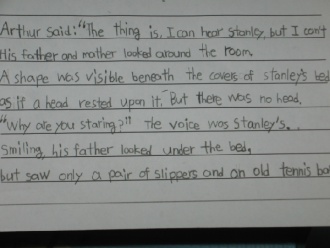 Arthur said: "The thing is, I can hear Stanley, but I can't
His father and mother looked around the room.
A shape was visible beneath the covers of stanley's bed
as if a head rested upon it. But there was no head.
"Why are you staring?" The voice was Stanley's.
Smiling, his father looked under the bed,
but saw only a pair of slippers and an old tennis